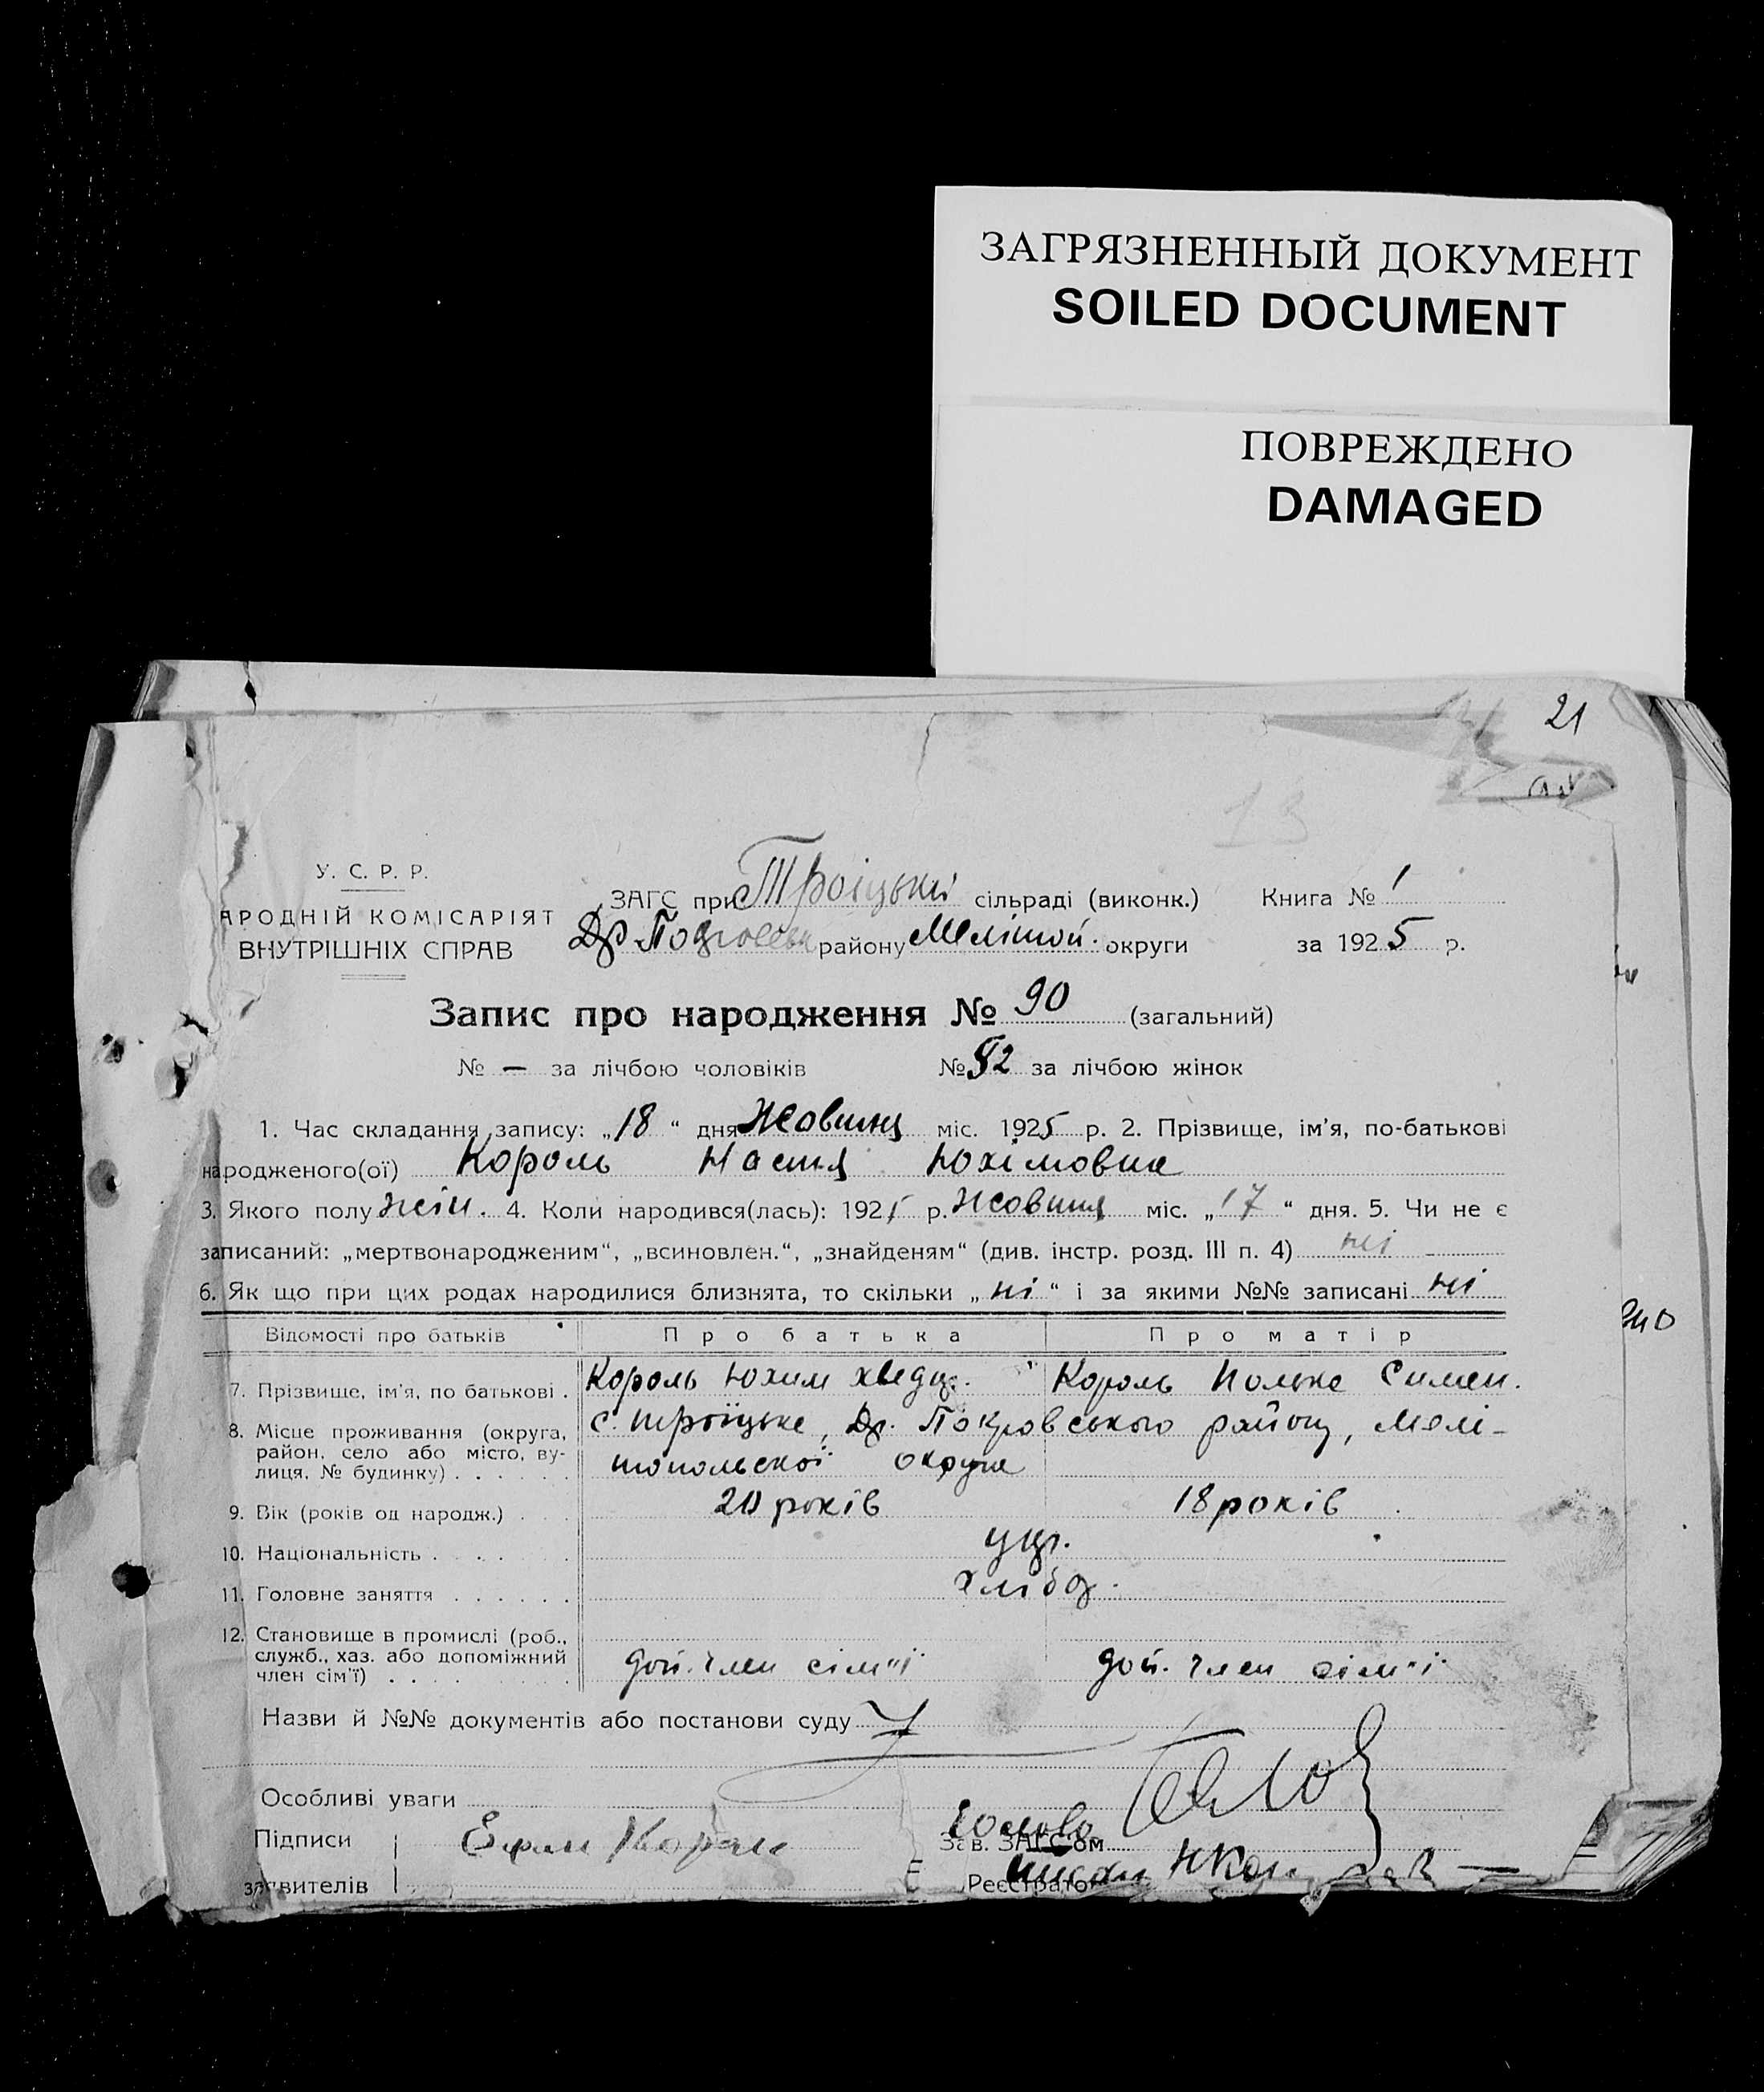 ЗАГРЯЗНЕННЫЙ ДОКУМЕНТ
SOILED DOCUMENT
ПОВРЕЖДЕНО
DAMAGED
21
13
У. С. Р. Р.
АРОДНІЙ КОМІСАРІЯТ
ВНУТРІШНІХ СПРАВ
ЗАГС при Троіцькій сільраді (виконк.) Книга № 1
району Меліtoй. округи за 1925 р.
Запис про народження № 90 (загальний)
№ — за лічбою чоловіків № 52 за лічбою жінок
1. Час складання запису: „18“ дня Жовтня міс. 1925 р. 2. Прізвище, ім'я, по-батькові
народженого(ої) Король Настя Юхімовна
3. Якого полу жін. 4. Коли народився(лась): 1925 р. Жовтня міс. „17“ дня. 5. Чи не є
записаний: „мертвонародженим“, „всиновлен.“, „знайденям“ (див. інстр. розд. III п. 4) ні
6. Як що при цих родах народилися близнята, то скільки „ні“ і за якими №№ записані ні
Відомості про батьків Про батька Про матір
7. Прізвище, ім'я, по батькові . Король Юхим Король Симен.
8. Місце проживання (округа, район, село або місто, вулиця, № будинку) . . . . . . с. Троїцьке, Др. Покровського району, Мелі-
топольскої округи
9. Вік (років од народж.) . . . 20 років 18 років
10. Національність . . . . . . укр.
11. Головне заняття . . . . . . хлібор.
12. Становище в промислі (роб., служб., хаз. або допоміжний член сім'ї) . . . . доп. член сім"ї доп. член сім"ї
Назви й №№ документів або постанови суду
Особливі уваги
Підписи
Голова
Зав. ЗАГС'ом
заявителів
Реєстратор